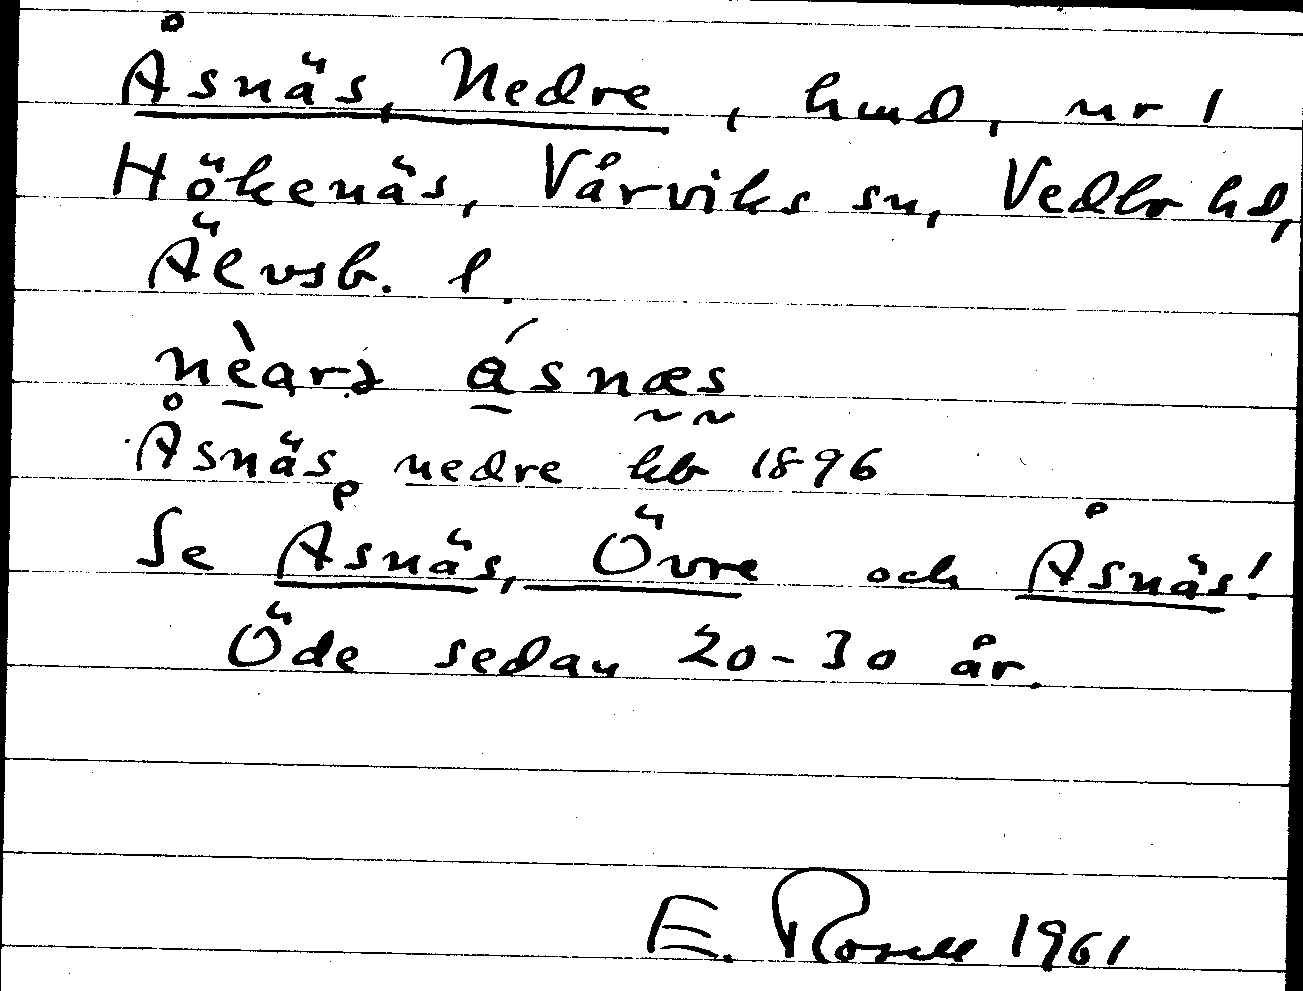 Åsnäs, Nedre, hmd, nr 1
Hökenäs, Vårviks sn, Vedbo hd,
Älvsb. l.
Åsnäs, nedre kb 1896
Se Åsnäs, Övre och Åsnäs!
Öde sedan 20-30 år.
E. Rosell 1961